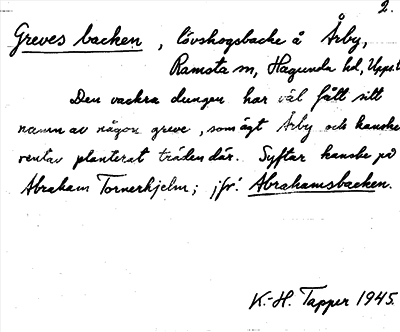 2.
Greves backen, lövskogsbacke å Årby,
Ramsta sn, Hagunda hd, Upps.l
Den vackra dungen har väl fått sitt
namn av någon greve, som ägt Årby och kanske
rentav planterat träden där. Syftar kanske på
Abraham Tornerhjelm; jfr: Abrahamsbacken.
K.-H. Tapper 1945.